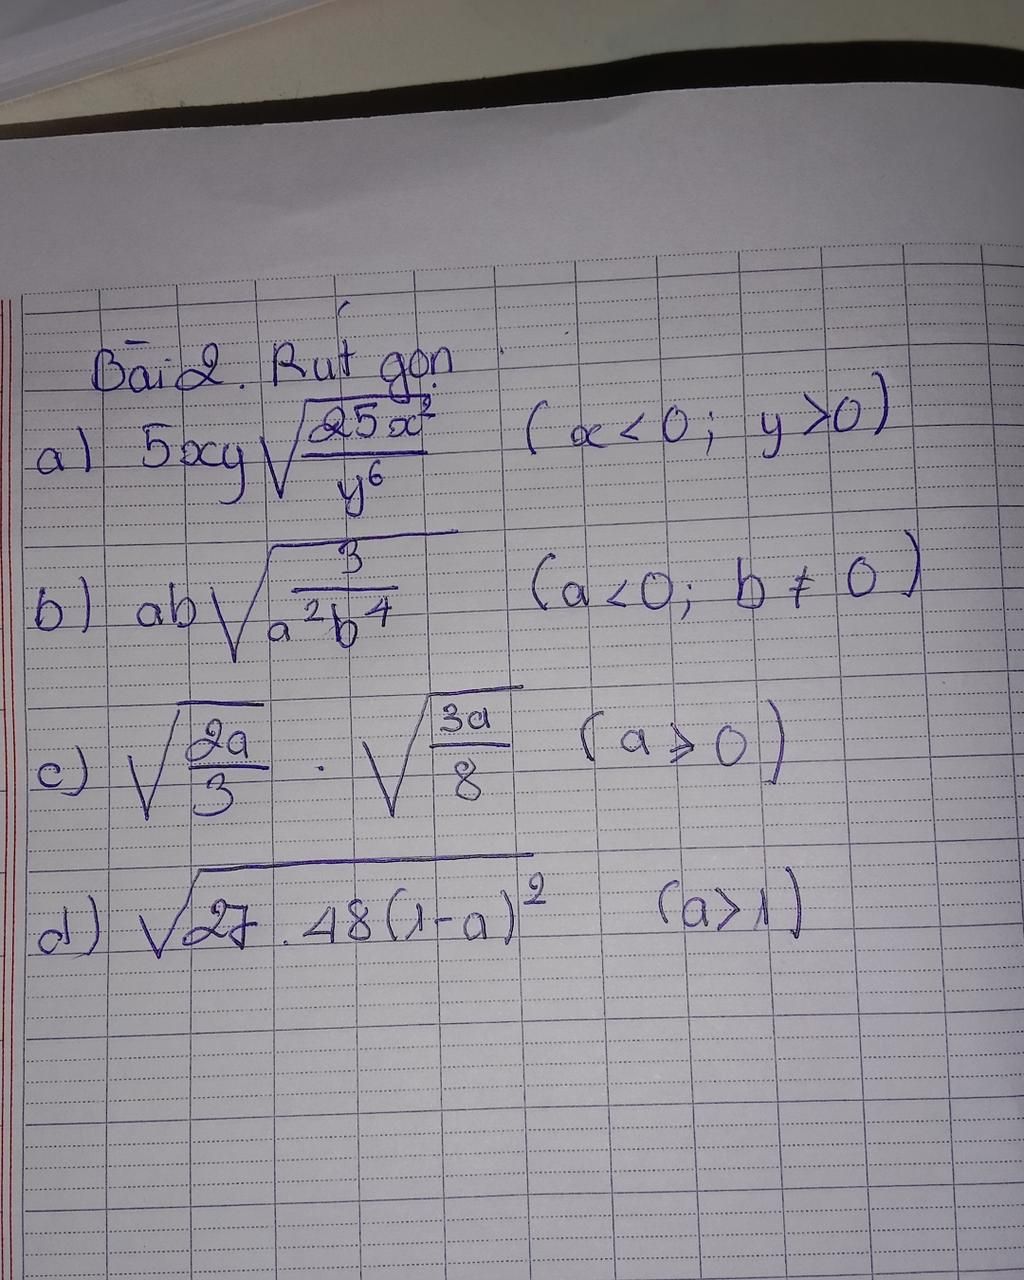 Bài 2. Rút gọn
a) 5xy√(25x²/y⁶) (x < 0; y > 0)
b) ab√(3/(a²b⁴)) (a < 0; b ≠ 0)
c) √(2a/3) . √(3a/8) (a ⩾ 0)
d) √(27 . 48(1-a)²) (a > 1)